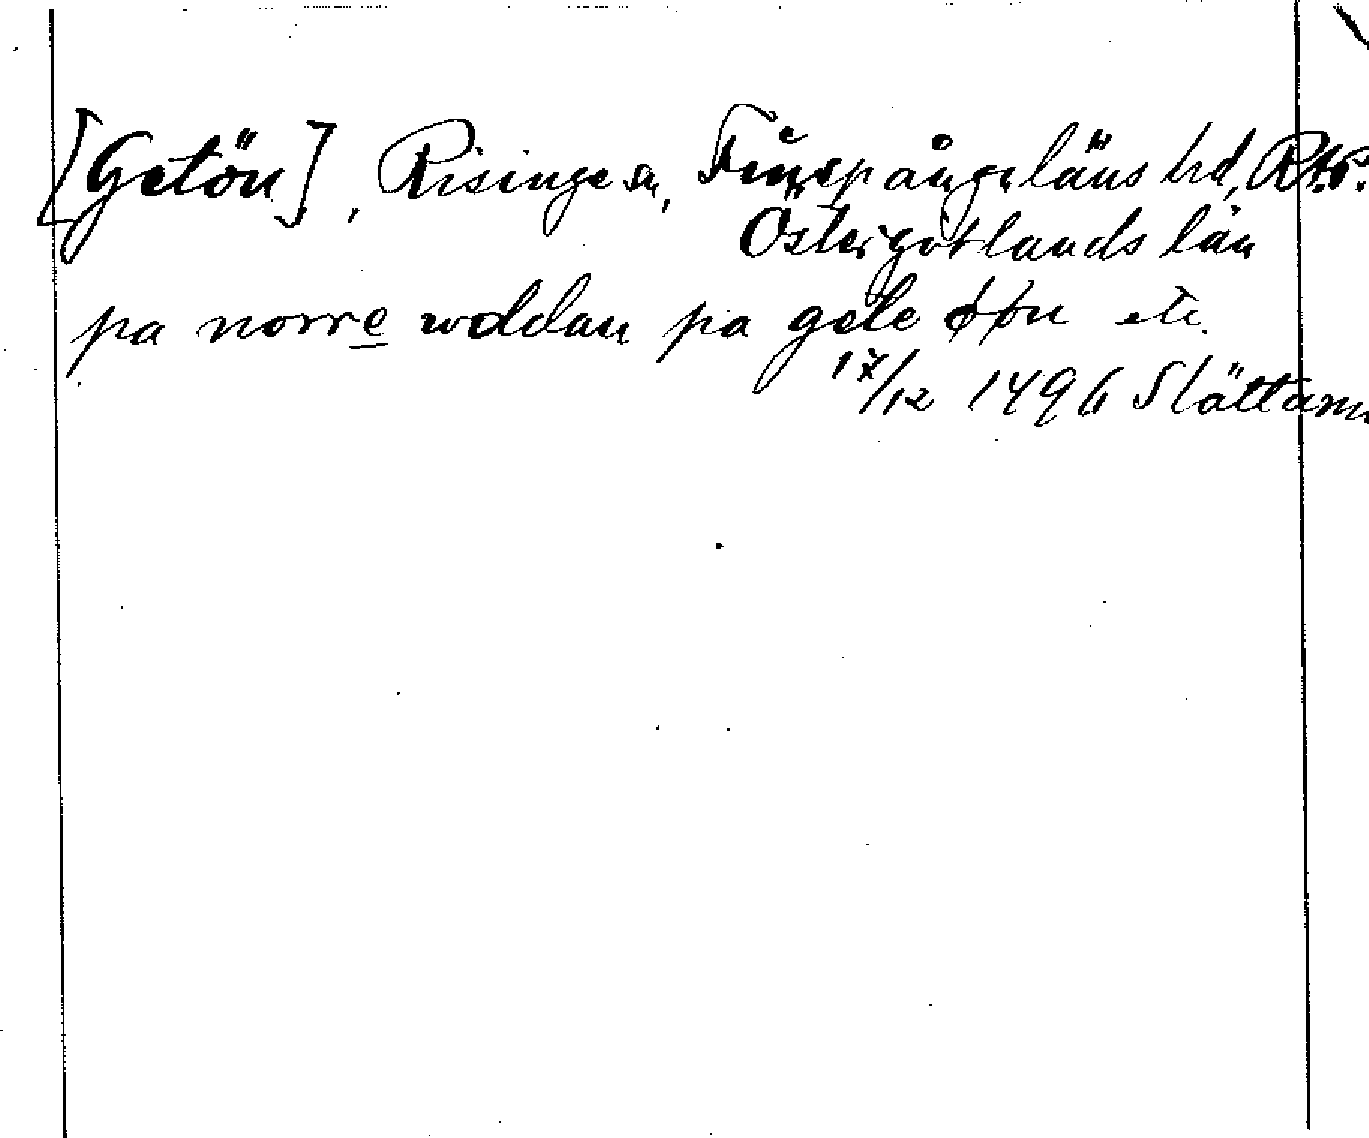 [Getön], Risinge sn, Finspångaläns hd,
Östergötlands län
pa norre woldan pa gete øøn etc.
17/12 1496 Slättam